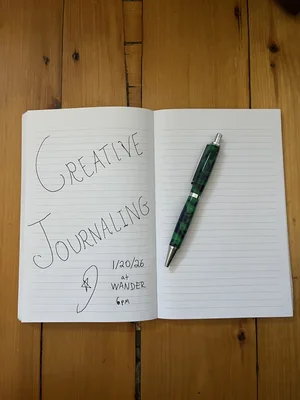 CREATIVE
JOURNALING
1/20/26
at
WANDER
6pm